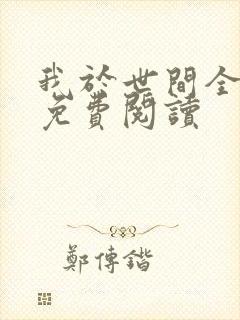 我於世間全
免費閱讀
鄭傳鍇